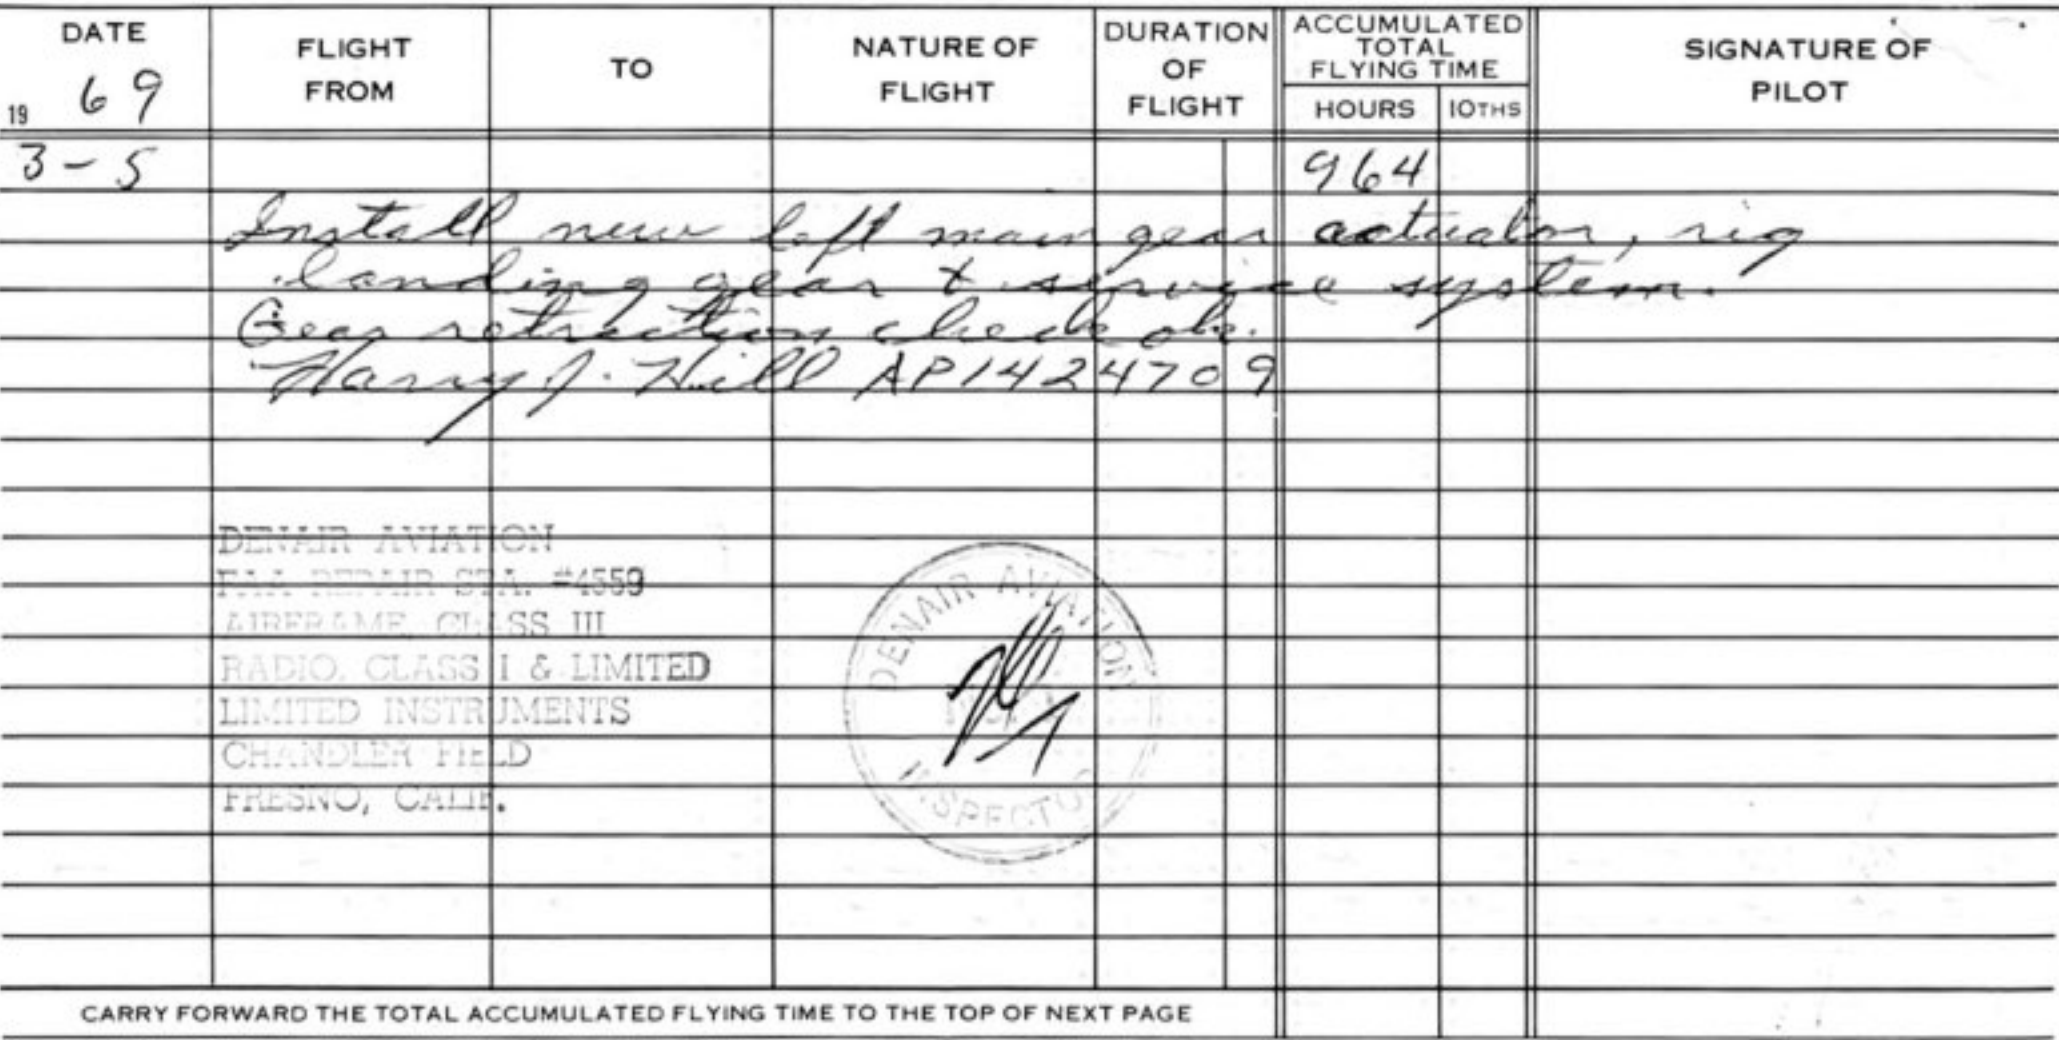 DATE
19 69
FLIGHT
FROM
TO
NATURE OF
FLIGHT
DURATION
OF
FLIGHT
ACCUMULATED
TOTAL
FLYING TIME
HOURS
10THS
SIGNATURE OF
PILOT
3-5
964
Install new left main gear actuator, rig
landing gear & service system.
Gear retraction check ok.
Harry J. Hill AP1424709
DENAIR AVIATION
FAA REPAIR STA. #4559
AIRFRAME, CLASS III
RADIO, CLASS I & LIMITED
LIMITED INSTRUMENTS
CHANDLER FIELD
FRESNO, CALIF.
DENAIR AVIATION
INSPECTOR
CARRY FORWARD THE TOTAL ACCUMULATED FLYING TIME TO THE TOP OF NEXT PAGE